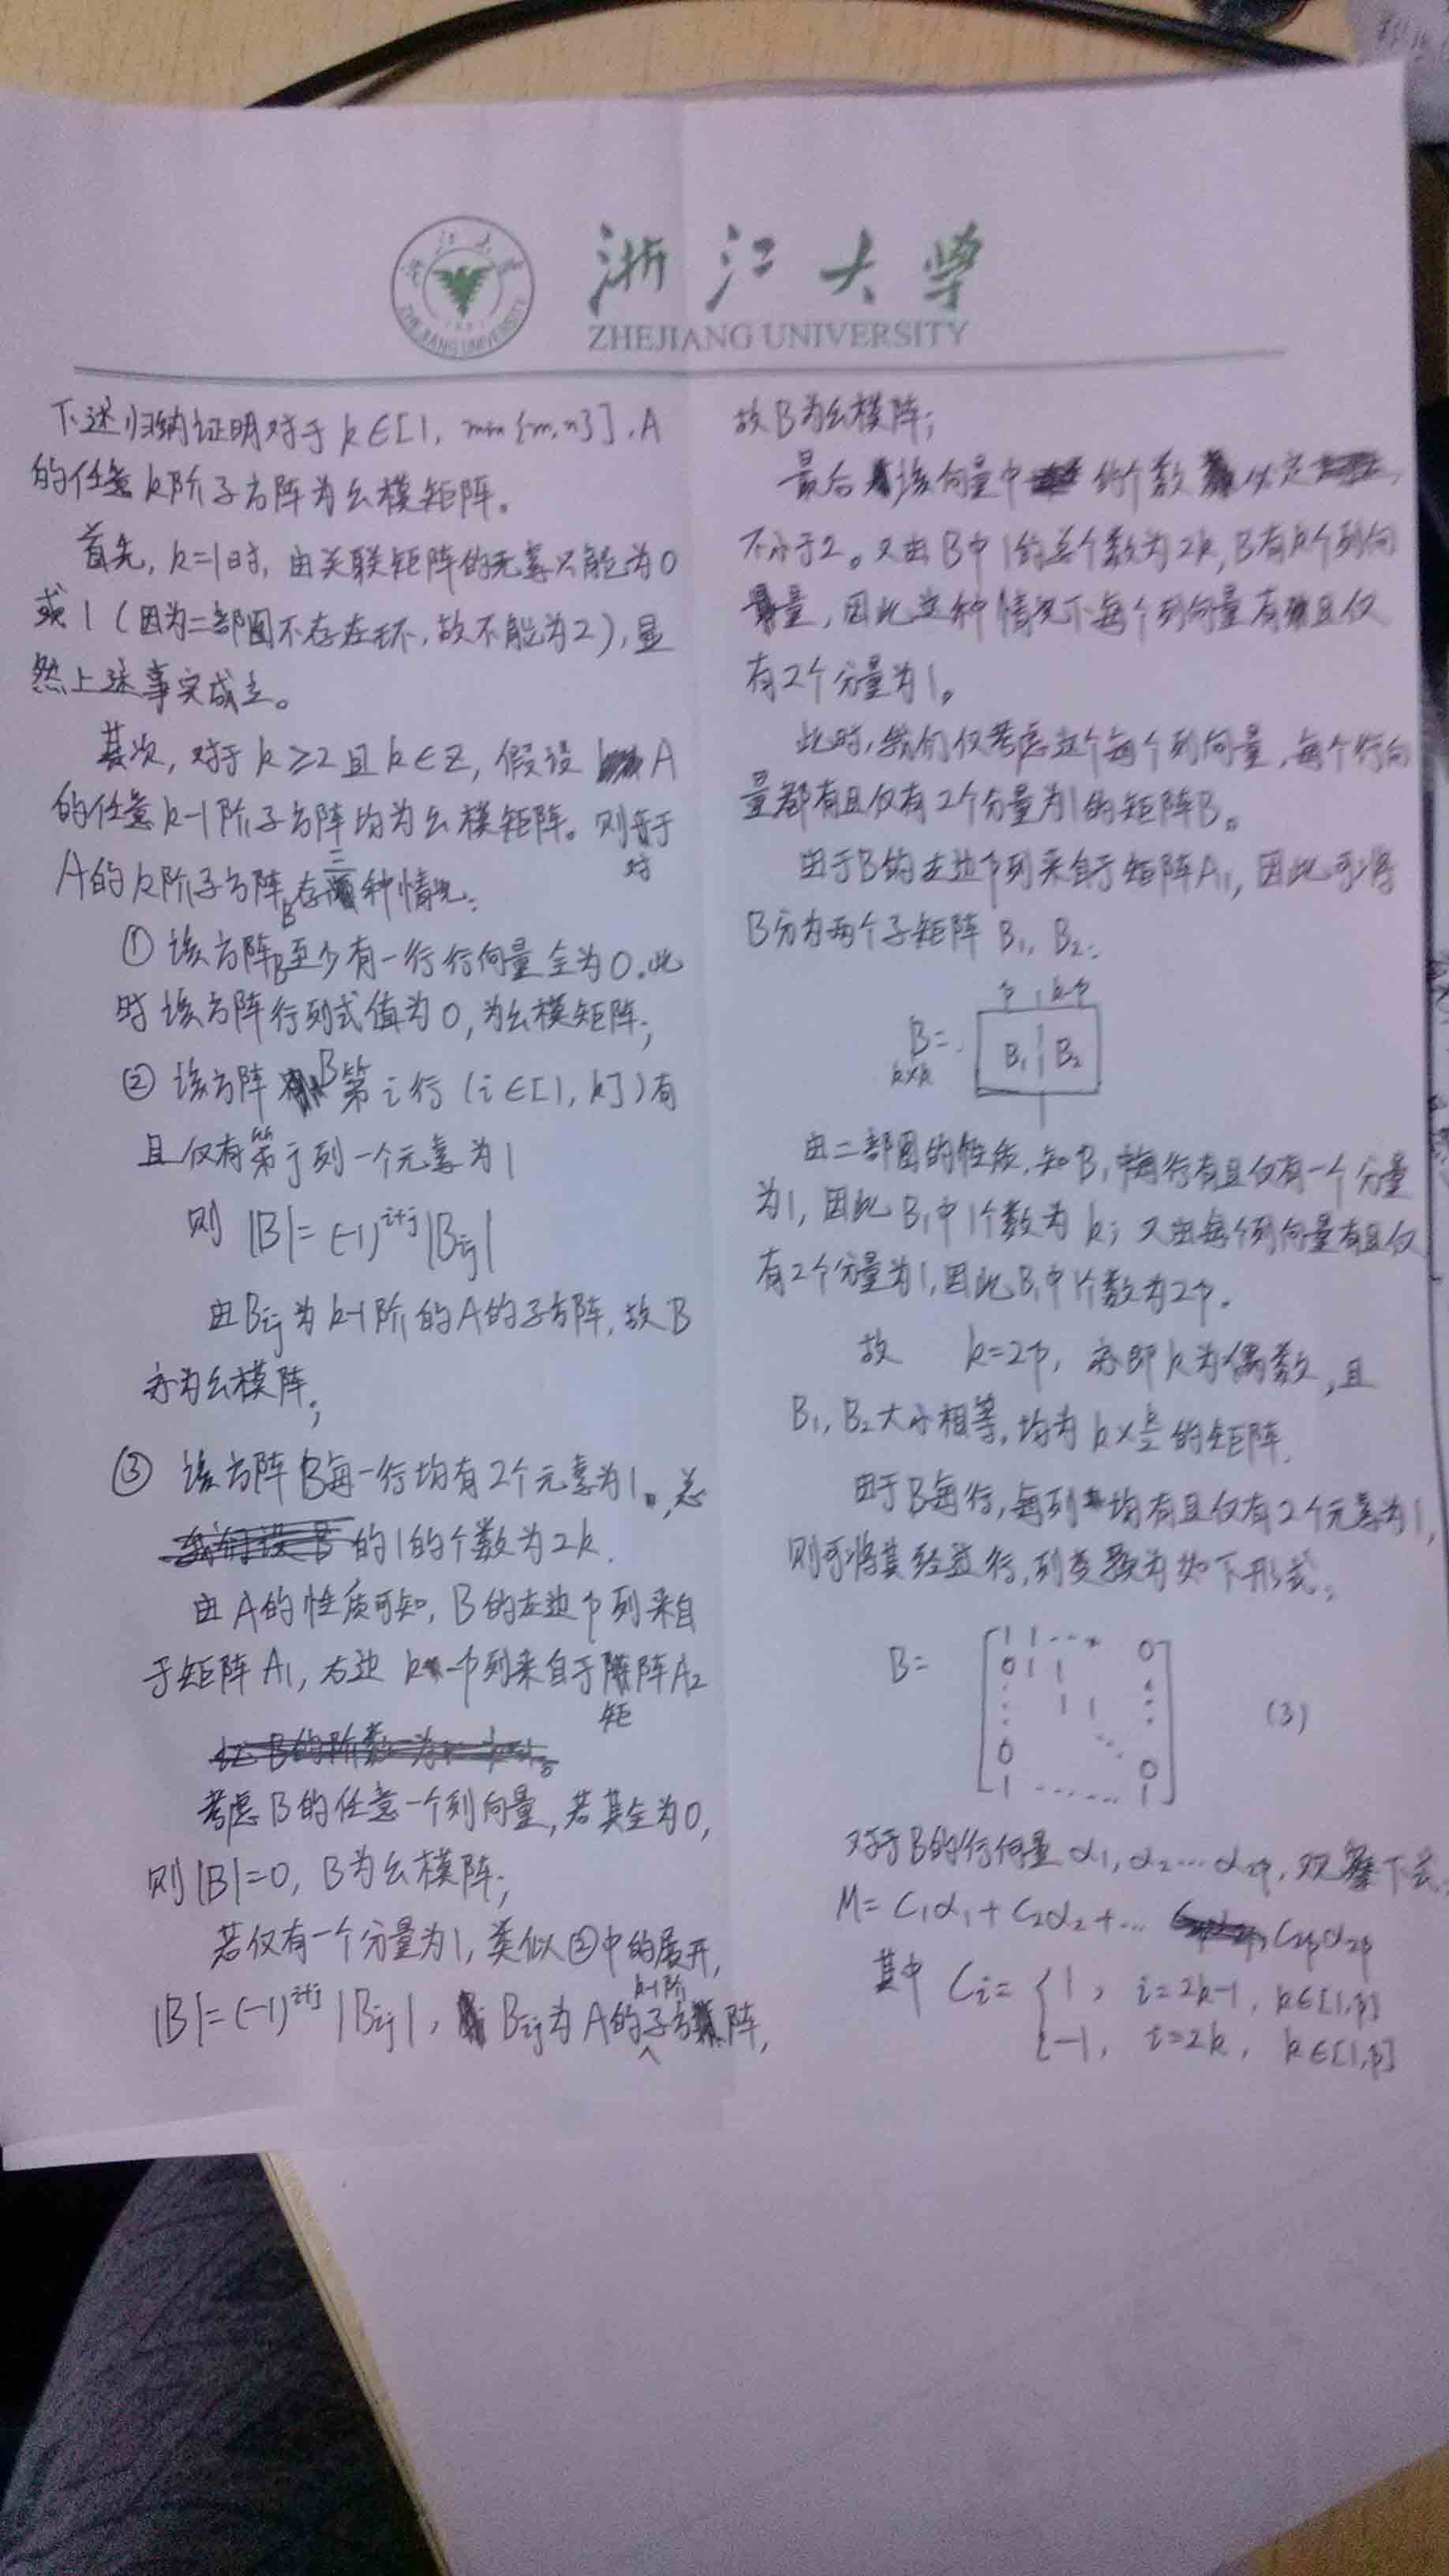 浙江大学
ZHEJIANG UNIVERSITY
下述归纳证明对于 k∈[1, min{m,n}], A
的任意k阶子方阵为幺模矩阵。
首先, k=1时, 由关联矩阵的元素只能为0
或1 (因为二部图不存在环, 故不能为2), 显
然上述事实成立。
其次, 对于 k≥2 且 k∈Z, 假设 A
的任意k-1阶子方阵均为幺模矩阵。则对于
A的k阶子方阵B存三种情况:
① 该方阵B至少有一行行向量全为0. 此
时该方阵行列式值为0, 为幺模矩阵;
② 该方阵B第i行 (i∈[1, k]) 有
且仅有第j列一个元素为1
则 |B|=(-1)^{i+j}|Bij|
由Bij为k-1阶的A的子方阵, 故B
亦为幺模阵;
③ 该方阵B每一行均有2个元素为1, 总
的1的个数为2k.
由A的性质可知, B的左边p列来自
于矩阵A1, 右边 k-p列来自于矩阵A2
考虑B的任意一个列向量, 若其全为0,
则|B|=0, B为幺模阵;
若仅有一个分量为1, 类似②中的展开,
|B|=(-1)^{i+j}|Bij|, Bij为A的k-1阶子方阵,
故B为幺模阵;
最后该向量中的个数必定
不小于2。又由B中1的总个数为2k, B有k个列向
量, 因此这种情况下每个列向量有且仅
有2个分量为1。
此时, 我们仅考虑这个每个列向量, 每个行向
量都有且仅有2个分量为1的矩阵B。
由于B的左边p列来自于矩阵A1, 因此可将
B分为两个子矩阵 B1, B2:
p k-p
B= B1 B2
k×k
由二部图的性质, 知B1中每行有且仅有一个分量
为1, 因此B1中1个数为k; 又由每个列向量有且仅
有2个分量为1, 因此B1中1个数为2p.
故 k=2p, 亦即k为偶数, 且
B1, B2大小相等, 均为 k×k/2 的矩阵.
由于B每行, 每列均有且仅有2个元素为1,
则可将其经过行, 列变换为如下形式:
1 1 … 0
0 1 1
B= 1 1 (3)
0 0
1 …… 1
对于B的行向量 α1, α2…α2p, 观察下式:
M= C1α1+C2α2+… C2pα2p
其中 Ci= { 1, i=2k-1, k∈[1,p]
-1, i=2k, k∈[1,p]